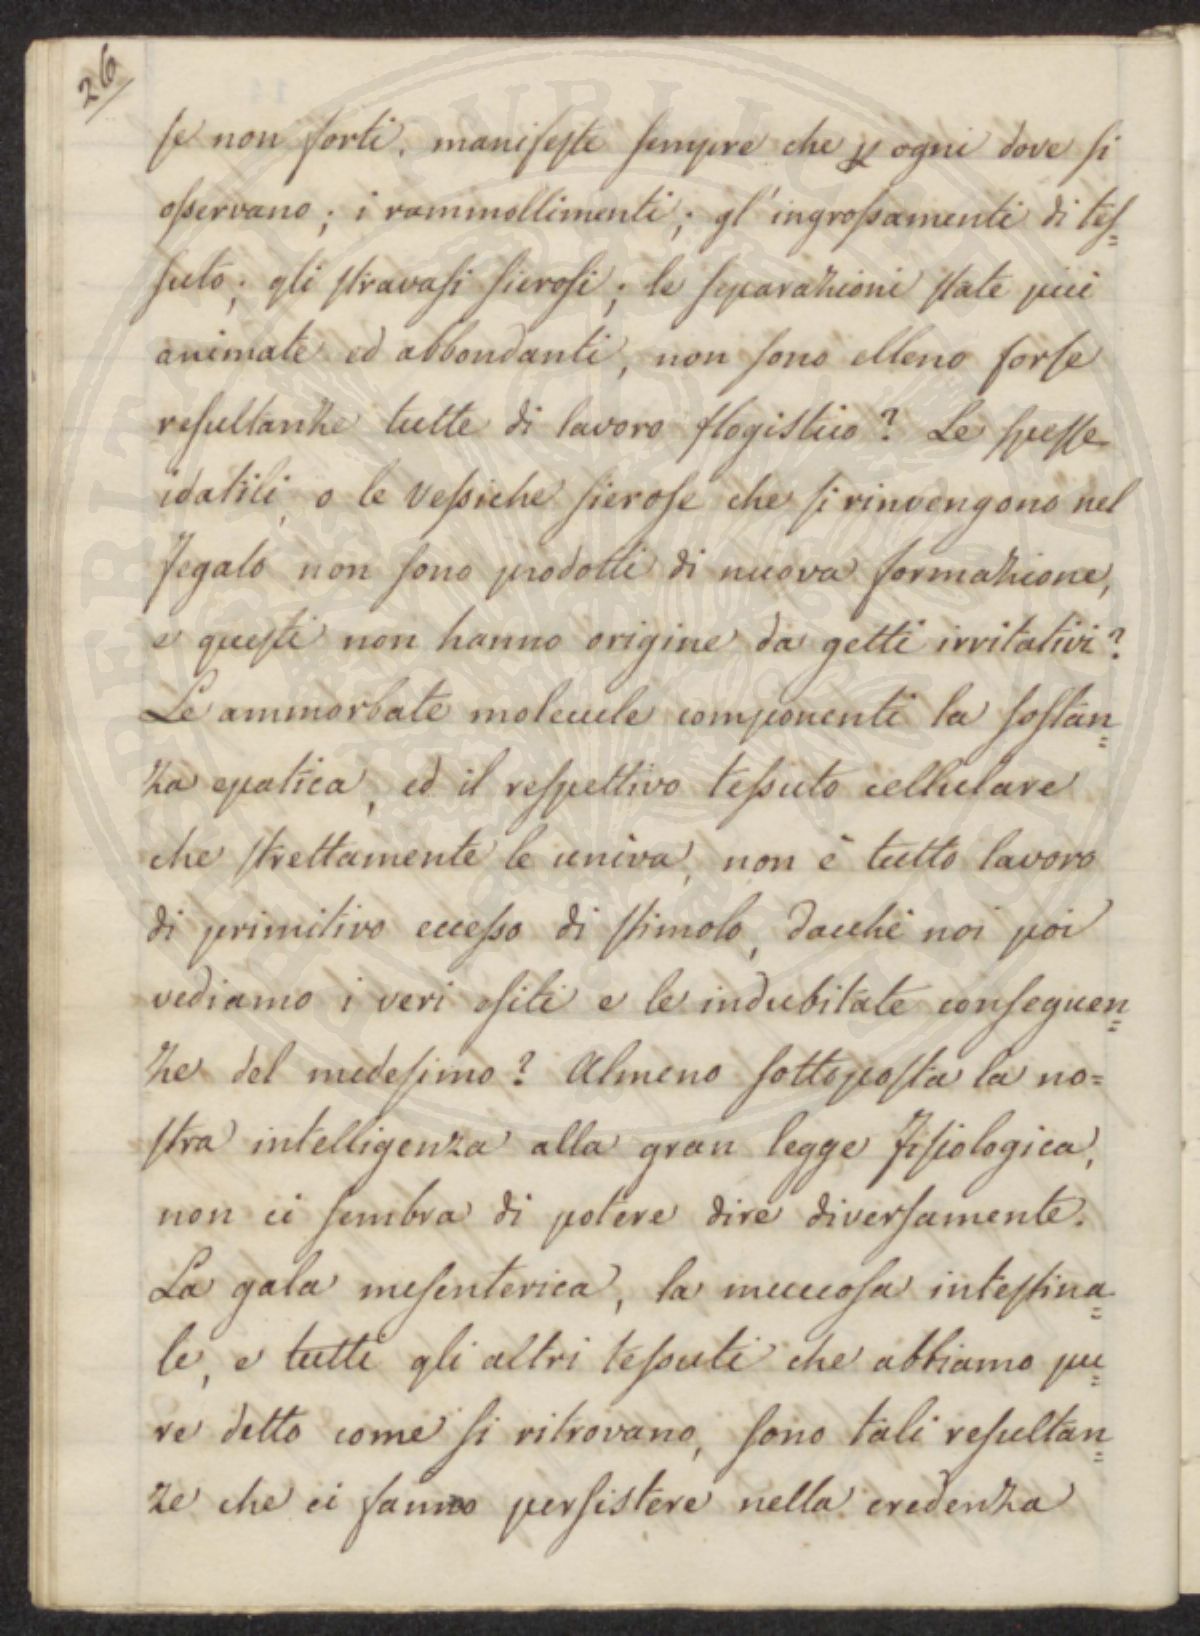 26
se non forti, manifeste sempre che p ogni dove si
osservano; i rammollimenti; gl'ingrossamenti di tes=
suto; gli stravasi sierosi; le separazioni state più
animate ed abbondanti, non sono elleno forse
resultanze tutte di lavoro flogistico? Le spesse
idatili, o le vessiche sierose che si rinvengono nel
Fegato non sono prodotti di nuova formazione,
e questi non hanno origine da getti irritativi?
Le ammorbate molecule componenti la sostan=
za epatica, ed il respettivo tessuto cellulare
che strettamente le univa, non è tutto lavoro
di primitivo eccesso di stimolo, dacchè noi poi
vediamo i veri esiti e le indubitate conseguen=
ze del medesimo? Almeno sottoposta la no=
stra intelligenza alla gran legge Fisiologica,
non ci sembra di potere dire diversamente.
La gala mesenterica, la muccosa intestina=
le, e tutti gli altri tessuti che abbiamo pu=
re detto come si ritrovano, sono tali resultan=
ze che ci fanno persistere nella credenza